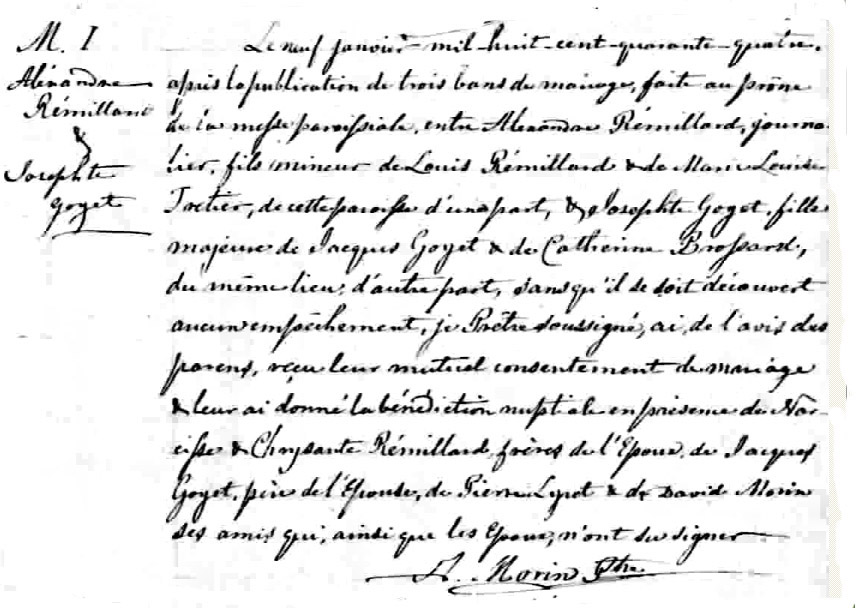 M. 1
Alexandre
Rémillard
&
Josephte
Goyet
Le neuf janvier mil-huit-cent-quarante-quatre,
après la publication de trois bans de mariage, faite au prône
de la messe paroissiale, entre Alexandre Rémillard, journa-
lier, fils mineur de Louis Rémillard & de Marie Louise
Tretier, de cette paroisse d'une part, & Josephte Goyet, fille
majeure de Jacques Goyet & de Catherine Brossard,
du même lieu, d'autre part, sans qu'il se soit découvert
aucun empêchement, je Prêtre soussigné, ai, de l'avis des
parens, reçu leur mutuel consentement de mariage
& leur ai donné la bénédiction nuptiale en présence de Nar-
cisse & Chrysante Rémillard, frères de l'Epoux, de Jacques
Goyet, père de l'Epouse, de Pierre & de David Morin
ses amis qui, ainsi que les Epoux, n'ont su signer
A. Morin Ptre